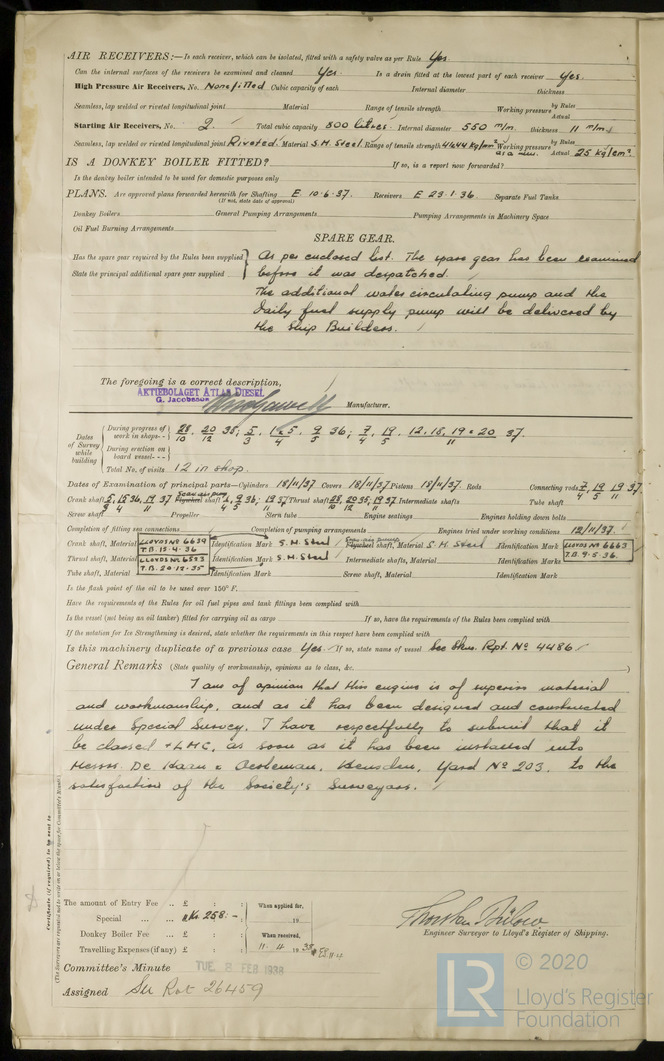 AIR RECEIVERS:—Is each receiver, which can be isolated, fitted with a safety valve as per Rule Yes.
Can the internal surfaces of the receivers be examined and cleaned Yes Is a drain fitted at the lowest part of each receiver Yes.
High Pressure Air Receivers, No. None fitted Cubic capacity of each Internal diameter thickness
Seamless, lap welded or riveted longitudinal joint Material Range of tensile strength Working pressure by Rules Actual
Starting Air Receivers, No. 2. Total cubic capacity 800 litres. Internal diameter 550 m/m. thickness 11 m/m.
Seamless, lap welded or riveted longitudinal joint Riveted. Material S.M. Steel. Range of tensile strength 41/44 Kg/mm² Working pressure by Rules Actual 25 kg/cm².
IS A DONKEY BOILER FITTED? If so, is a report now forwarded?
Is the donkey boiler intended to be used for domestic purposes only
PLANS. Are approved plans forwarded herewith for Shafting E. 10.6.37. Receivers E 23.1.36. Separate Fuel Tanks
(If not, state date of approval)
Donkey Boilers General Pumping Arrangements Pumping Arrangements in Machinery Space
Oil Fuel Burning Arrangements
SPARE GEAR.
Has the spare gear required by the Rules been supplied As per enclosed list. The spare gear has been examined
State the principal additional spare gear supplied before it was despatched.
The additional water circulating pump and the
daily fuel supply pump will be delivered by
the Ship Builders.
The foregoing is a correct description,
AKTIEBOLAGET ATLAS DIESEL
G. Jacobsson
Manufacturer.
Dates of Survey while building
During progress of work in shops - - 28/10, 20/12 35; 5/3, 1 & 5/4, 9/5 36; 7/4, 19/5, 12, 18, 19 & 20/11 37.
During erection on board vessel - - -
Total No. of visits 12 in shop.
Dates of Examination of principal parts—Cylinders 18/11/37 Covers 18/11/37 Pistons 18/11/37 Rods Connecting rods 7/4 19/5 19/11 37
Crank shaft Thrust shaft Intermediate shafts Tube shaft
Screw shaft Propeller Stern tube Engine seatings Engines holding down bolts
Completion of fitting sea connections Completion of pumping arrangements Engines tried under working conditions 12/11/37
Crank shaft, Material LLOYDS Nº 6639 T.B. 15.4.36 Identification Mark S.M. Steel shaft, Material S.M. Steel Identification Mark LLOYDS Nº 6663 T.B. 9.5.36.
Thrust shaft, Material LLOYDS Nº 6523 T.B. 20.12.35 Identification Mark S.M. Steel Intermediate shafts, Material Identification Marks
Tube shaft, Material Identification Mark Screw shaft, Material Identification Mark
Is the flash point of the oil to be used over 150° F.
Have the requirements of the Rules for oil fuel pipes and tank fittings been complied with
Is the vessel (not being an oil tanker) fitted for carrying oil as cargo If so, have the requirements of the Rules been complied with
If the notation for Ice Strengthening is desired, state whether the requirements in this respect have been complied with
Is this machinery duplicate of a previous case Yes. If so, state name of vessel See Skm. Rpt. Nº 4486
General Remarks (State quality of workmanship, opinions as to class, &c.)
I am of opinion that this engine is of superior material
and workmanship, and as it has been designed and constructed
under Special Survey, I have respectfully to submit that it
be classed + LMC, as soon as it has been installed into
Messrs. De Haan & Oerlemans, Heusden, Yard Nº 203, to the
satisfaction of the Society's Surveyors.
Certificate (if required) to be sent to
(The Surveyors are requested not to write on or below the space for Committee's Minute.)
The amount of Entry Fee .. £ : : When applied for,
Special ... ... Kr. 258:- : 19
Donkey Boiler Fee ... £ : : When received,
Travelling Expenses (if any) £ : : 11.4 1938
Engineer Surveyor to Lloyd's Register of Shipping.
Committee's Minute TUE 8 FEB 1938
Assigned See Rot 26459
© 2020
LR
Lloyd's Register
Foundation